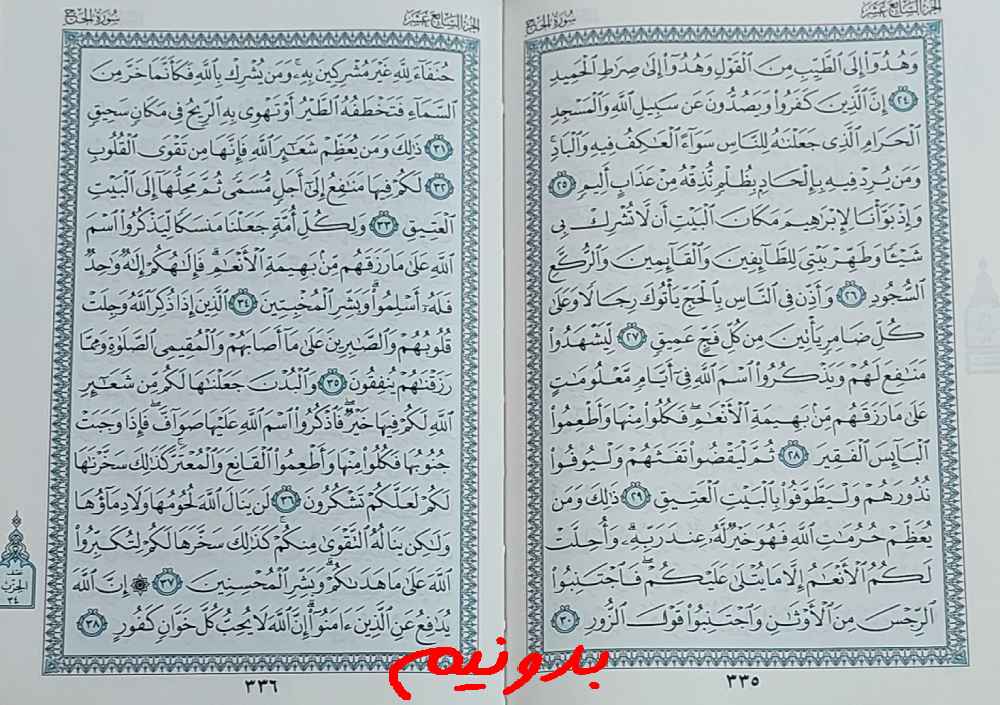 الجزء السابع عشر
سورة الحج
وَهُدُوٓا۟ إِلَى ٱلطَّيِّبِ مِنَ ٱلْقَوْلِ وَهُدُوٓا۟ إِلَىٰ صِرَٰطِ ٱلْحَمِيدِ
٢٤ إِنَّ ٱلَّذِينَ كَفَرُوا۟ وَيَصُدُّونَ عَن سَبِيلِ ٱللَّهِ وَٱلْمَسْجِدِ
ٱلْحَرَامِ ٱلَّذِى جَعَلْنَٰهُ لِلنَّاسِ سَوَآءً ٱلْعَٰكِفُ فِيهِ وَٱلْبَادِ
وَمَن يُرِدْ فِيهِ بِإِلْحَادٍۭ بِظُلْمٍ نُّذِقْهُ مِنْ عَذَابٍ أَلِيمٍ ٢٥
وَإِذْ بَوَّأْنَا لِإِبْرَٰهِيمَ مَكَانَ ٱلْبَيْتِ أَن لَّا تُشْرِكْ بِى
شَيْـًٔا وَطَهِّرْ بَيْتِىَ لِلطَّآئِفِينَ وَٱلْقَآئِمِينَ وَٱلرُّكَّعِ
ٱلسُّجُودِ ٢٦ وَأَذِّن فِى ٱلنَّاسِ بِٱلْحَجِّ يَأْتُوكَ رِجَالًا وَعَلَىٰ
كُلِّ ضَامِرٍ يَأْتِينَ مِن كُلِّ فَجٍّ عَمِيقٍ ٢٧ لِّيَشْهَدُوا۟
مَنَٰفِعَ لَهُمْ وَيَذْكُرُوا۟ ٱسْمَ ٱللَّهِ فِىٓ أَيَّامٍ مَّعْلُومَٰتٍ
عَلَىٰ مَا رَزَقَهُم مِّنۢ بَهِيمَةِ ٱلْأَنْعَٰمِ ۖ فَكُلُوا۟ مِنْهَا وَأَطْعِمُوا۟
ٱلْبَآئِسَ ٱلْفَقِيرَ ٢٨ ثُمَّ لْيَقْضُوا۟ تَفَثَهُمْ وَلْيُوفُوا۟
نُذُورَهُمْ وَلْيَطَّوَّفُوا۟ بِٱلْبَيْتِ ٱلْعَتِيقِ ٢٩ ذَٰلِكَ وَمَن
يُعَظِّمْ حُرُمَٰتِ ٱللَّهِ فَهُوَ خَيْرٌ لَّهُۥ عِندَ رَبِّهِۦ ۗ وَأُحِلَّتْ
لَكُمُ ٱلْأَنْعَٰمُ إِلَّا مَا يُتْلَىٰ عَلَيْكُمْ ۖ فَٱجْتَنِبُوا۟
ٱلرِّجْسَ مِنَ ٱلْأَوْثَٰنِ وَٱجْتَنِبُوا۟ قَوْلَ ٱلزُّورِ ٣٠
٣٣٥
الجزء السابع عشر
سورة الحج
حُنَفَآءَ لِلَّهِ غَيْرَ مُشْرِكِينَ بِهِۦ ۚ وَمَن يُشْرِكْ بِٱللَّهِ فَكَأَنَّمَا خَرَّ مِنَ
ٱلسَّمَآءِ فَتَخْطَفُهُ ٱلطَّيْرُ أَوْ تَهْوِى بِهِ ٱلرِّيحُ فِى مَكَانٍ سَحِيقٍ
٣١ ذَٰلِكَ وَمَن يُعَظِّمْ شَعَٰٓئِرَ ٱللَّهِ فَإِنَّهَا مِن تَقْوَى ٱلْقُلُوبِ
٣٢ لَكُمْ فِيهَا مَنَٰفِعُ إِلَىٰٓ أَجَلٍ مُّسَمًّى ثُمَّ مَحِلُّهَآ إِلَى ٱلْبَيْتِ
ٱلْعَتِيقِ ٣٣ وَلِكُلِّ أُمَّةٍ جَعَلْنَا مَنسَكًا لِّيَذْكُرُوا۟ ٱسْمَ
ٱللَّهِ عَلَىٰ مَا رَزَقَهُم مِّنۢ بَهِيمَةِ ٱلْأَنْعَٰمِ ۗ فَإِلَٰهُكُمْ إِلَٰهٌ وَٰحِدٌ
فَلَهُۥٓ أَسْلِمُوا۟ ۗ وَبَشِّرِ ٱلْمُخْبِتِينَ ٣٤ ٱلَّذِينَ إِذَا ذُكِرَ ٱللَّهُ وَجِلَتْ
قُلُوبُهُمْ وَٱلصَّٰبِرِينَ عَلَىٰ مَآ أَصَابَهُمْ وَٱلْمُقِيمِى ٱلصَّلَوٰةِ وَمِمَّا
رَزَقْنَٰهُمْ يُنفِقُونَ ٣٥ وَٱلْبُدْنَ جَعَلْنَٰهَا لَكُم مِّن شَعَٰٓئِرِ
ٱللَّهِ لَكُمْ فِيهَا خَيْرٌ ۖ فَٱذْكُرُوا۟ ٱسْمَ ٱللَّهِ عَلَيْهَا صَوَآفَّ ۖ فَإِذَا وَجَبَتْ
جُنُوبُهَا فَكُلُوا۟ مِنْهَا وَأَطْعِمُوا۟ ٱلْقَانِعَ وَٱلْمُعْتَرَّ ۚ كَذَٰلِكَ سَخَّرْنَٰهَا
لَكُمْ لَعَلَّكُمْ تَشْكُرُونَ ٣٦ لَن يَنَالَ ٱللَّهَ لُحُومُهَا وَلَا دِمَآؤُهَا
وَلَٰكِن يَنَالُهُ ٱلتَّقْوَىٰ مِنكُمْ ۚ كَذَٰلِكَ سَخَّرَهَا لَكُمْ لِتُكَبِّرُوا۟
ٱللَّهَ عَلَىٰ مَا هَدَىٰكُمْ ۗ وَبَشِّرِ ٱلْمُحْسِنِينَ ٣٧ ۞ إِنَّ ٱللَّهَ
يُدَٰفِعُ عَنِ ٱلَّذِينَ ءَامَنُوٓا۟ ۗ إِنَّ ٱللَّهَ لَا يُحِبُّ كُلَّ خَوَّانٍ كَفُورٍ ٣٨
٣٣٦
نصف
الحزب
٣٤
بدونیم